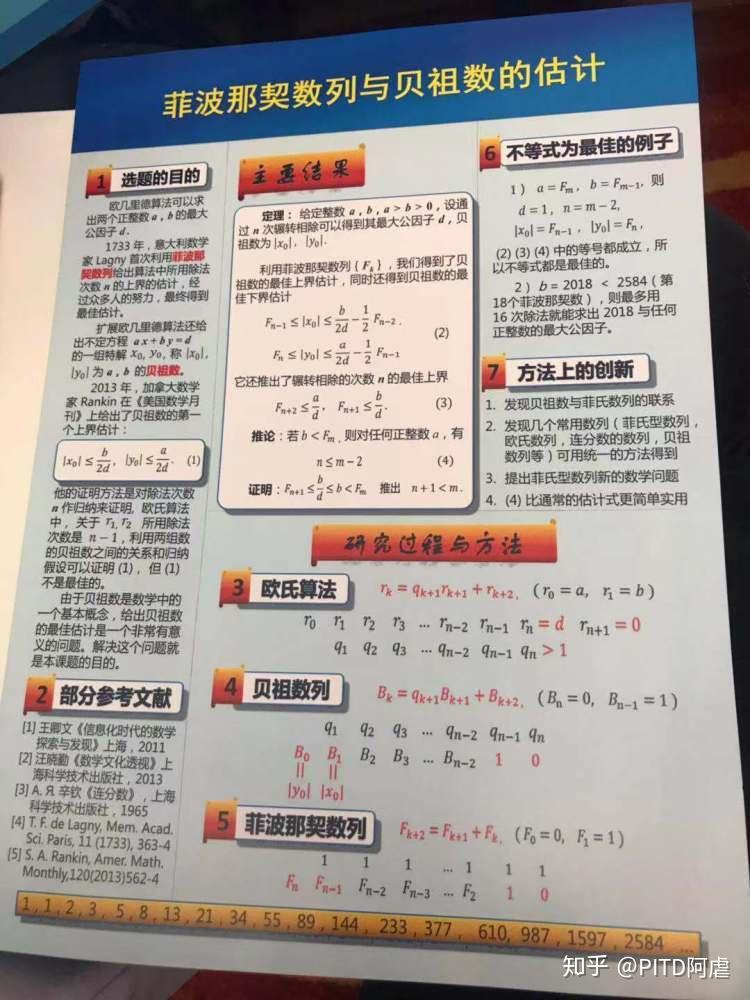 菲波那契数列与贝祖数的估计
1 选题的目的
欧几里德算法可以求
出两个正整数 a , b 的最大
公因子 d .
1733 年，意大利数学
家 Lagny 首次利用菲波那
契数列给出算法中所用除法
次数 n 的上界的估计，经
过众多人的努力，最终得到
最佳估计。
扩展欧几里德算法还给
出不定方程 ax + by = d
的一组特解 x₀, y₀, 称 |x₀|,
|y₀| 为 a , b 的贝祖数。
2013 年，加拿大数学
家 Rankin 在《美国数学月
刊》上给出了贝祖数的第一
个上界估计：
|x₀| ≤ b/2d , |y₀| ≤ a/2d . (1)
他的证明方法是对除法次数
n 作归纳来证明. 欧氏算法
中，关于 r₁, r₂ 所用除法
次数是 n − 1，利用两组数
的贝祖数之间的关系和归纳
假设可以证明 (1)，但 (1)
不是最佳的。
由于贝祖数是数学中的
一个基本概念，给出贝祖数
的最佳估计是一个非常有意
义的问题。解决这个问题就
是本课题的目的。
2 部分参考文献
[1] 王卿文《信息化时代的数学
探索与发现》上海，2011
[2] 汪晓勤《数学文化透视》上
海科学技术出版社，2013
[3] А. Я. 辛钦《连分数》，上海
科学技术出版社，1965
[4] T. F. de Lagny, Mem. Acad.
Sci. Paris, 11 (1733), 363-4
[5] S. A. Rankin, Amer. Math.
Monthly,120(2013)562-4
主要结果
定理： 给定整数 a , b , a > b > 0 , 设通
过 n 次辗转相除可以得到其最大公因子 d , 贝
祖数为 |x₀| , |y₀| .
利用菲波那契数列 { Fₖ } , 我们得到了贝
祖数的最佳上界估计，同时还得到贝祖数的最
佳下界估计
Fₙ₋₁ ≤ |x₀| ≤ b/2d − 1/2 Fₙ₋₂ .
(2)
Fₙ ≤ |y₀| ≤ a/2d − 1/2 Fₙ₋₁
它还推出了辗转相除的次数 n 的最佳上界
Fₙ₊₂ ≤ a/d , Fₙ₊₁ ≤ b/d . (3)
推论：若 b < Fₘ , 则对任何正整数 a , 有
n ≤ m − 2 (4)
证明：Fₙ₊₁ ≤ b/d ≤ b < Fₘ 推出 n + 1 < m .
6 不等式为最佳的例子
1） a = Fₘ , b = Fₘ₋₁, 则
d = 1 , n = m − 2,
|x₀| = Fₙ₋₁ , |y₀| = Fₙ ,
(2) (3) (4) 中的等号都成立，所
以不等式都是最佳的。
2）b = 2018 < 2584 ( 第
18个菲波那契数 ) , 则最多用
16 次除法就能求出 2018 与任何
正整数的最大公因子。
7 方法上的创新
1. 发现贝祖数与菲氏数列的联系
2. 发现几个常用数列 ( 菲氏型数列，
欧氏数列，连分数的数列，贝祖
数列等 ) 可用统一的方法得到
3. 提出菲氏型数列新的数学问题
4. (4) 比通常的估计式更简单实用
研究过程与方法
3 欧氏算法 rₖ = qₖ₊₁rₖ₊₁ + rₖ₊₂ , ( r₀ = a, r₁ = b )
r₀ r₁ r₂ r₃ … rₙ₋₂ rₙ₋₁ rₙ = d rₙ₊₁ = 0
q₁ q₂ q₃ … qₙ₋₂ qₙ₋₁ qₙ > 1
4 贝祖数列 Bₖ = qₖ₊₁Bₖ₊₁ + Bₖ₊₂ , ( Bₙ = 0, Bₙ₋₁ = 1 )
q₁ q₂ q₃ … qₙ₋₂ qₙ₋₁ qₙ
B₀ B₁ B₂ B₃ … Bₙ₋₂ 1 0
|| ||
|y₀| |x₀|
5 菲波那契数列 Fₖ₊₂ = Fₖ₊₁ + Fₖ , ( F₀ = 0, F₁ = 1 )
1 1 1 … 1 1 1
Fₙ Fₙ₋₁ Fₙ₋₂ Fₙ₋₃ … F₂ 1 0
1 , 1 , 2 , 3 , 5 , 8 , 13 , 21 , 34 , 55 , 89 , 144 , 233 , 377 , 610, 987 , 1597 , 2584 ...
知乎 @PITD阿虐